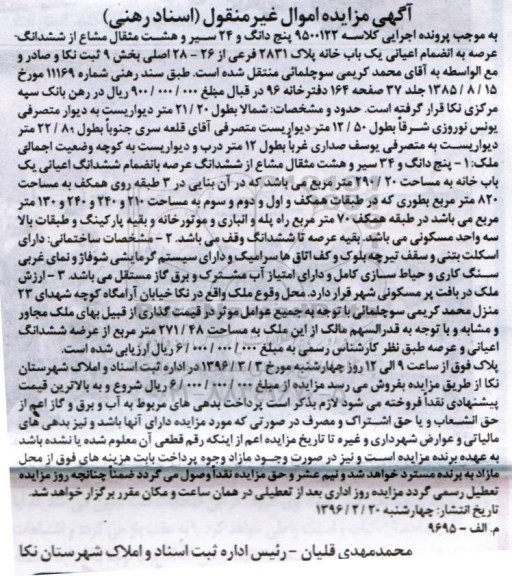 آگهی مزایده اموال غیر منقول (اسناد رهنی)
به موجب پرونده اجرایی کلاسه ۹۵۰۰۱۲۲ پنج دانگ و ۲۴ سیر و هشت مثقال مشاع از ششدانگ-
عرصه به انضمام اعیانی یک باب خانه پلاک ۲۸۳۱ فرعی از ۲۶ - ۲۸ اصلی بخش ۹ ثبت نکا و صادر و
مع الواسطه به آقای محمد کریمی سوچلمائی منتقل شده است. طبق سند رهنی شماره ۱۱۱۶۹ مورخ
۱۵ / ۸ / ۱۳۸۵ جلد ۳۷ صفحه ۱۶۴ دفترخانه ۹۶ در قبال مبلغ ۰۰۰ / ۰۰۰ / ۹۰۰ ریال در رهن بانک سپه
مرکزی نکا قرار گرفته است. حدود و مشخصات: شمالا بطول ۲۰ / ۲۱ متر دیواریست به دیوار متصرفی
یونس نوروزی شرقاً بطول ۵۰ / ۱۲ متر دیواریست متصرفی آقای قلعه سری جنوباً بطول ۸۰ / ۲۲ متر
دیواریست به متصرفی یوسف صداری غرباً بطول ۱۲ متر درب و دیواریست به کوچه وضعیت اجمالی
ملک: ۱ - پنج دانگ و ۳۴ سیر و هشت مثقال مشاع از ششدانگ عرصه بانضمام ششدانگ اعیانی یک
باب خانه به مساحت ۲۰ / ۲۹۷ متر مربع می باشد که در آن بنایی در ۳ طبقه روی همکف به مساحت
۸۲۰ متر مربع بطوری که در طبقات همکف و اول و دوم و سوم به مساحت ۲۱۰ و ۲۴۰ و ۲۴۰ و ۱۳۰ متر
مربع می باشد در طبقه همکف ۷۰ متر مربع راه پله و انباری و موتورخانه و بقیه پارکینگ و طبقات بالا
سه واحد مسکونی می باشد. بقیه عرصه تا ششدانگ وقف می باشد. ۲ - مشخصات ساختمانی: دارای
اسکلت بتنی و سقف تیرچه بلوک و کف اتاق ها سرامیک و دارای سیستم گرمایشی شوفاژ و نمای غربی
سنگ کاری و حیاط سازی کامل و دارای امتیاز آب مشترک و برق گاز مستقل می باشد. ۳ - ارزش
ملک در بافت پر مسکونی شهر قرار دارد. محل وقوع ملک واقع در نکا خیابان آرامگاه کوچه شهدای ۲۳
منزل محمد کریمی سوچلمائی با توجه به جمیع عوامل موثر در قیمت گذاری از قبیل بهای ملک مجاور
و مشابه و با توجه به قدرالسهم مالک از این ملک به مساحت ۴۸ / ۲۷۱ متر مربع از عرصه ششدانگ
اعیانی و عرصه طبق نظر کارشناس رسمی به مبلغ ۰۰۰ / ۰۰۰ / ۰۰۰ / ۶ ریال ارزیابی شده است.
پلاک فوق از ساعت ۹ الی ۱۲ روز چهارشنبه مورخ ۳ / ۳ / ۱۳۹۶ در اداره ثبت اسناد و املاک شهرستان
نکا از طریق مزایده بفروش می رسد مزایده از مبلغ ۰۰۰ / ۰۰۰ / ۰۰۰ / ۶ ریال شروع و به بالاترین قیمت
پیشنهادی نقدا فروخته می شود لازم بذکر است پرداخت بدهی های مربوط به آب و برق و گاز اعم از
حق انشعاب و یا حق اشتراک و مصرف در صورتی که مورد مزایده دارای آنها باشد و نیز بدهی های
مالیاتی و عوارض شهرداری و غیره تا تاریخ مزایده اعم از اینکه رقم قطعی آن معلوم شده یا نشده باشد
به عهده برنده مزایده است و نیز در صورت وجود مازاد وجوه پرداخت بابت هزینه های فوق از محل
مازاد به برنده مسترد خواهد شد و نیم عشر و حق مزایده نقداً وصول می گردد ضمناً چنانچه روز مزایده
تعطیل رسمی گردد مزایده روز اداری بعد از تعطیلی در همان ساعت و مکان مقرر برگزار خواهد شد.
تاریخ انتشار: چهارشنبه ۲۰ / ۲ / ۱۳۹۶
م. الف - ۹۶۹۵
محمدمهدی قلیان - رئیس اداره ثبت اسناد و املاک شهرستان نکا